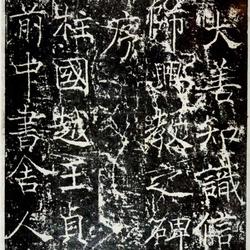 大善知識信
師興教之碑
序
柱國越王貞
前中書舍人